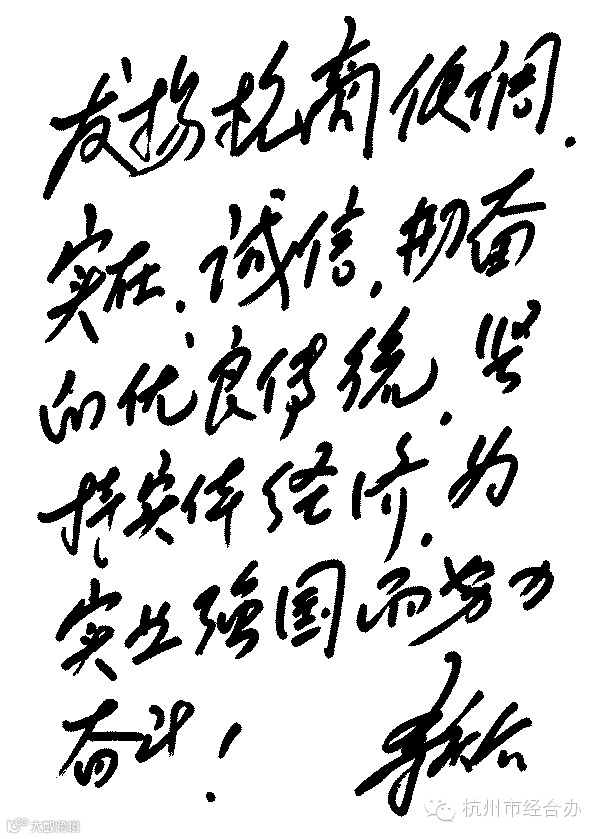 发扬杭商低调.
实在.诚信.勤奋
的优良传统.坚
持实体经济.为
实业强国而努力
奋斗!
杭州市经合办
大数跨境